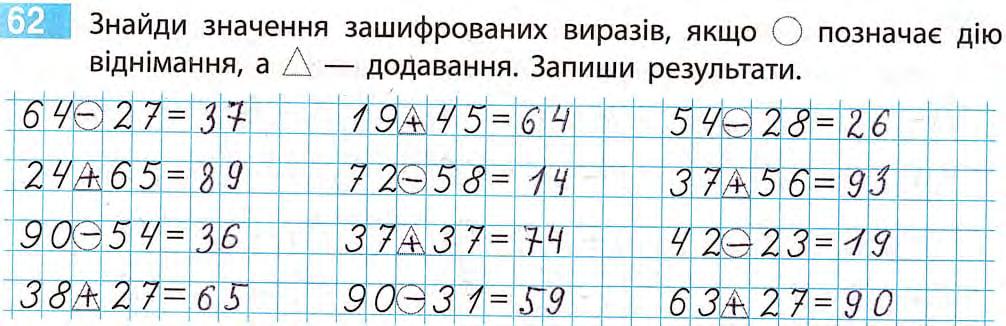 62 Знайди значення зашифрованих виразів, якщо ○ позначає дію
віднімання, а △ — додавання. Запиши результати.
64 − 27 = 37 19 + 45 = 64 54 − 28 = 26
24 + 65 = 89 72 − 58 = 14 37 + 56 = 93
90 − 54 = 36 37 + 37 = 74 42 − 23 = 19
38 + 27 = 65 90 − 31 = 59 63 + 27 = 90